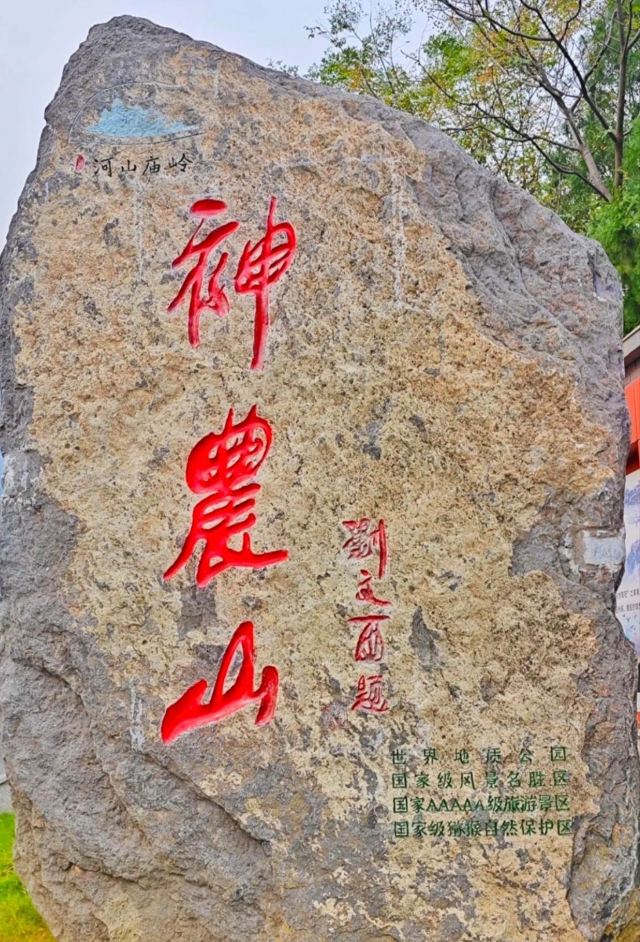 河山庙岭
神農山
劉文西题
世界地质公园
国家级风景名胜区
国家AAAAA级旅游景区
国家级猕猴自然保护区